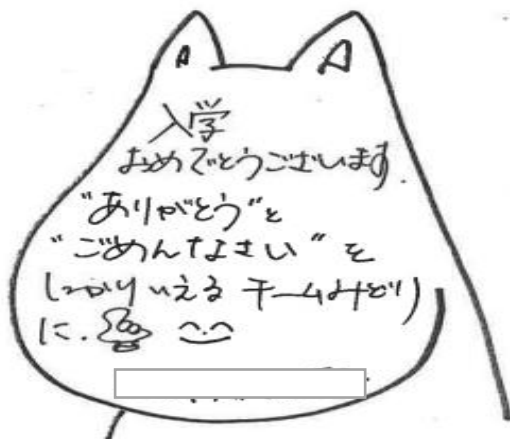 入学
おめでとうございます.
"ありがとう"と
"ごめんなさい"を
しっかりいえるチームみどり
に.